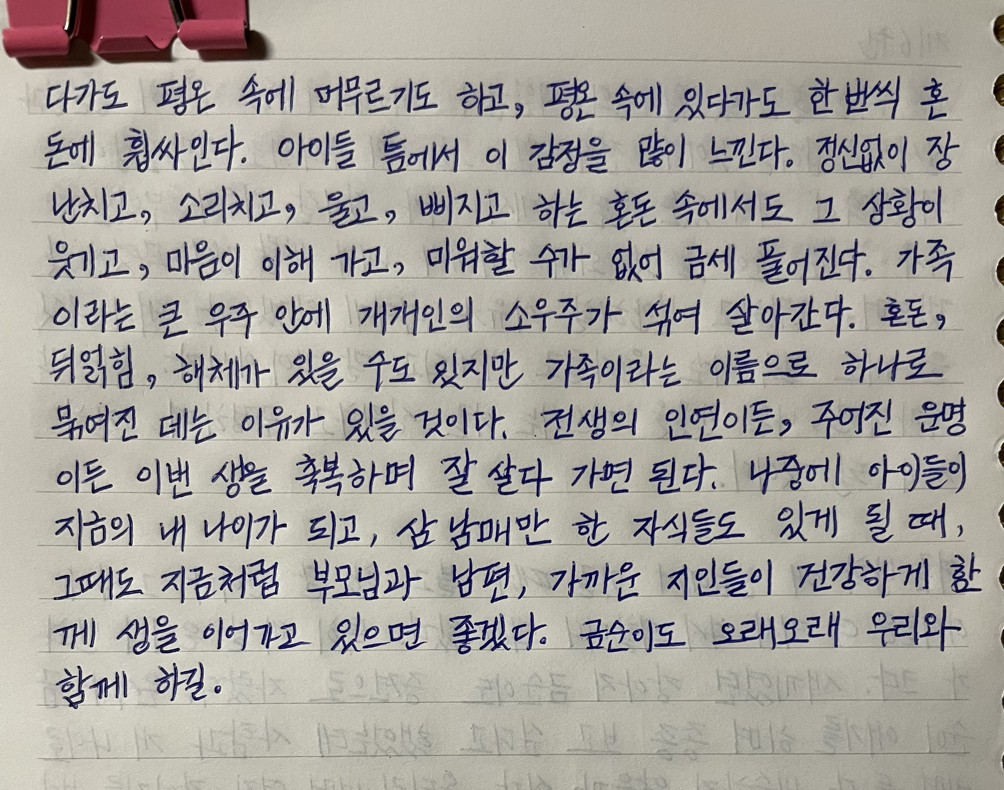 다가도 평온 속에 머무르기도 하고, 평온 속에 있다가도 한 번씩 혼
돈에 휩싸인다. 아이들 틈에서 이 감정을 많이 느낀다. 정신없이 장
난치고, 소리치고, 울고, 삐지고 하는 혼돈 속에서도 그 상황이
웃기고, 마음이 이해 가고, 미워할 수가 없어 금세 풀어진다. 가족
이라는 큰 우주 안에 개개인의 소우주가 섞여 살아간다. 혼돈,
뒤얽힘, 해체가 있을 수도 있지만 가족이라는 이름으로 하나로
묶여진 데는 이유가 있을 것이다. 전생의 인연이든, 주어진 운명
이든 이번 생을 축복하며 잘 살다 가면 된다. 나중에 아이들이
지금의 내 나이가 되고, 삼 남매만 한 자식들도 있게 될 때,
그때도 지금처럼 부모님과 남편, 가까운 지인들이 건강하게 함
께 생을 이어가고 있으면 좋겠다. 금순이도 오래오래 우리와
함께 하길.